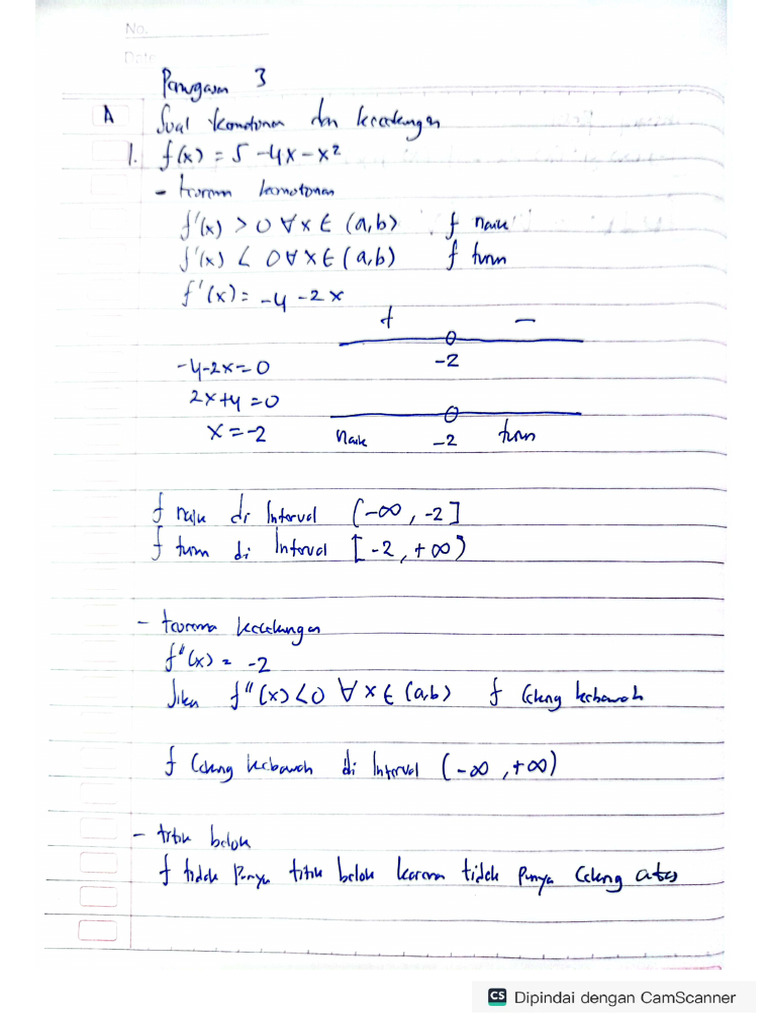 No.
Date
Penugasan 3
A Soal kemotonan dan kecekungan
1. f(x) = 5 -4x - x²
- teorema kemotonan
f'(x) > 0 ∀x ∈ (a,b) f naik
f'(x) < 0 ∀x ∈ (a,b) f turun
f'(x) = -4 -2x
+ −
-2
-4-2x=0
2x+4=0
x=-2
naik -2 turun
f naik di Interval (-∞, -2]
f turun di Interval [-2, +∞)
- teorema kecekungan
f"(x) = -2
Jika f"(x)<0 ∀x ∈ (a,b) f Cekung kebawah
f Cekung kebawah di Interval (-∞, +∞)
- titik belok
f tidak Punya titik belok karena tidak punya Cekung atas
CS Dipindai dengan CamScanner